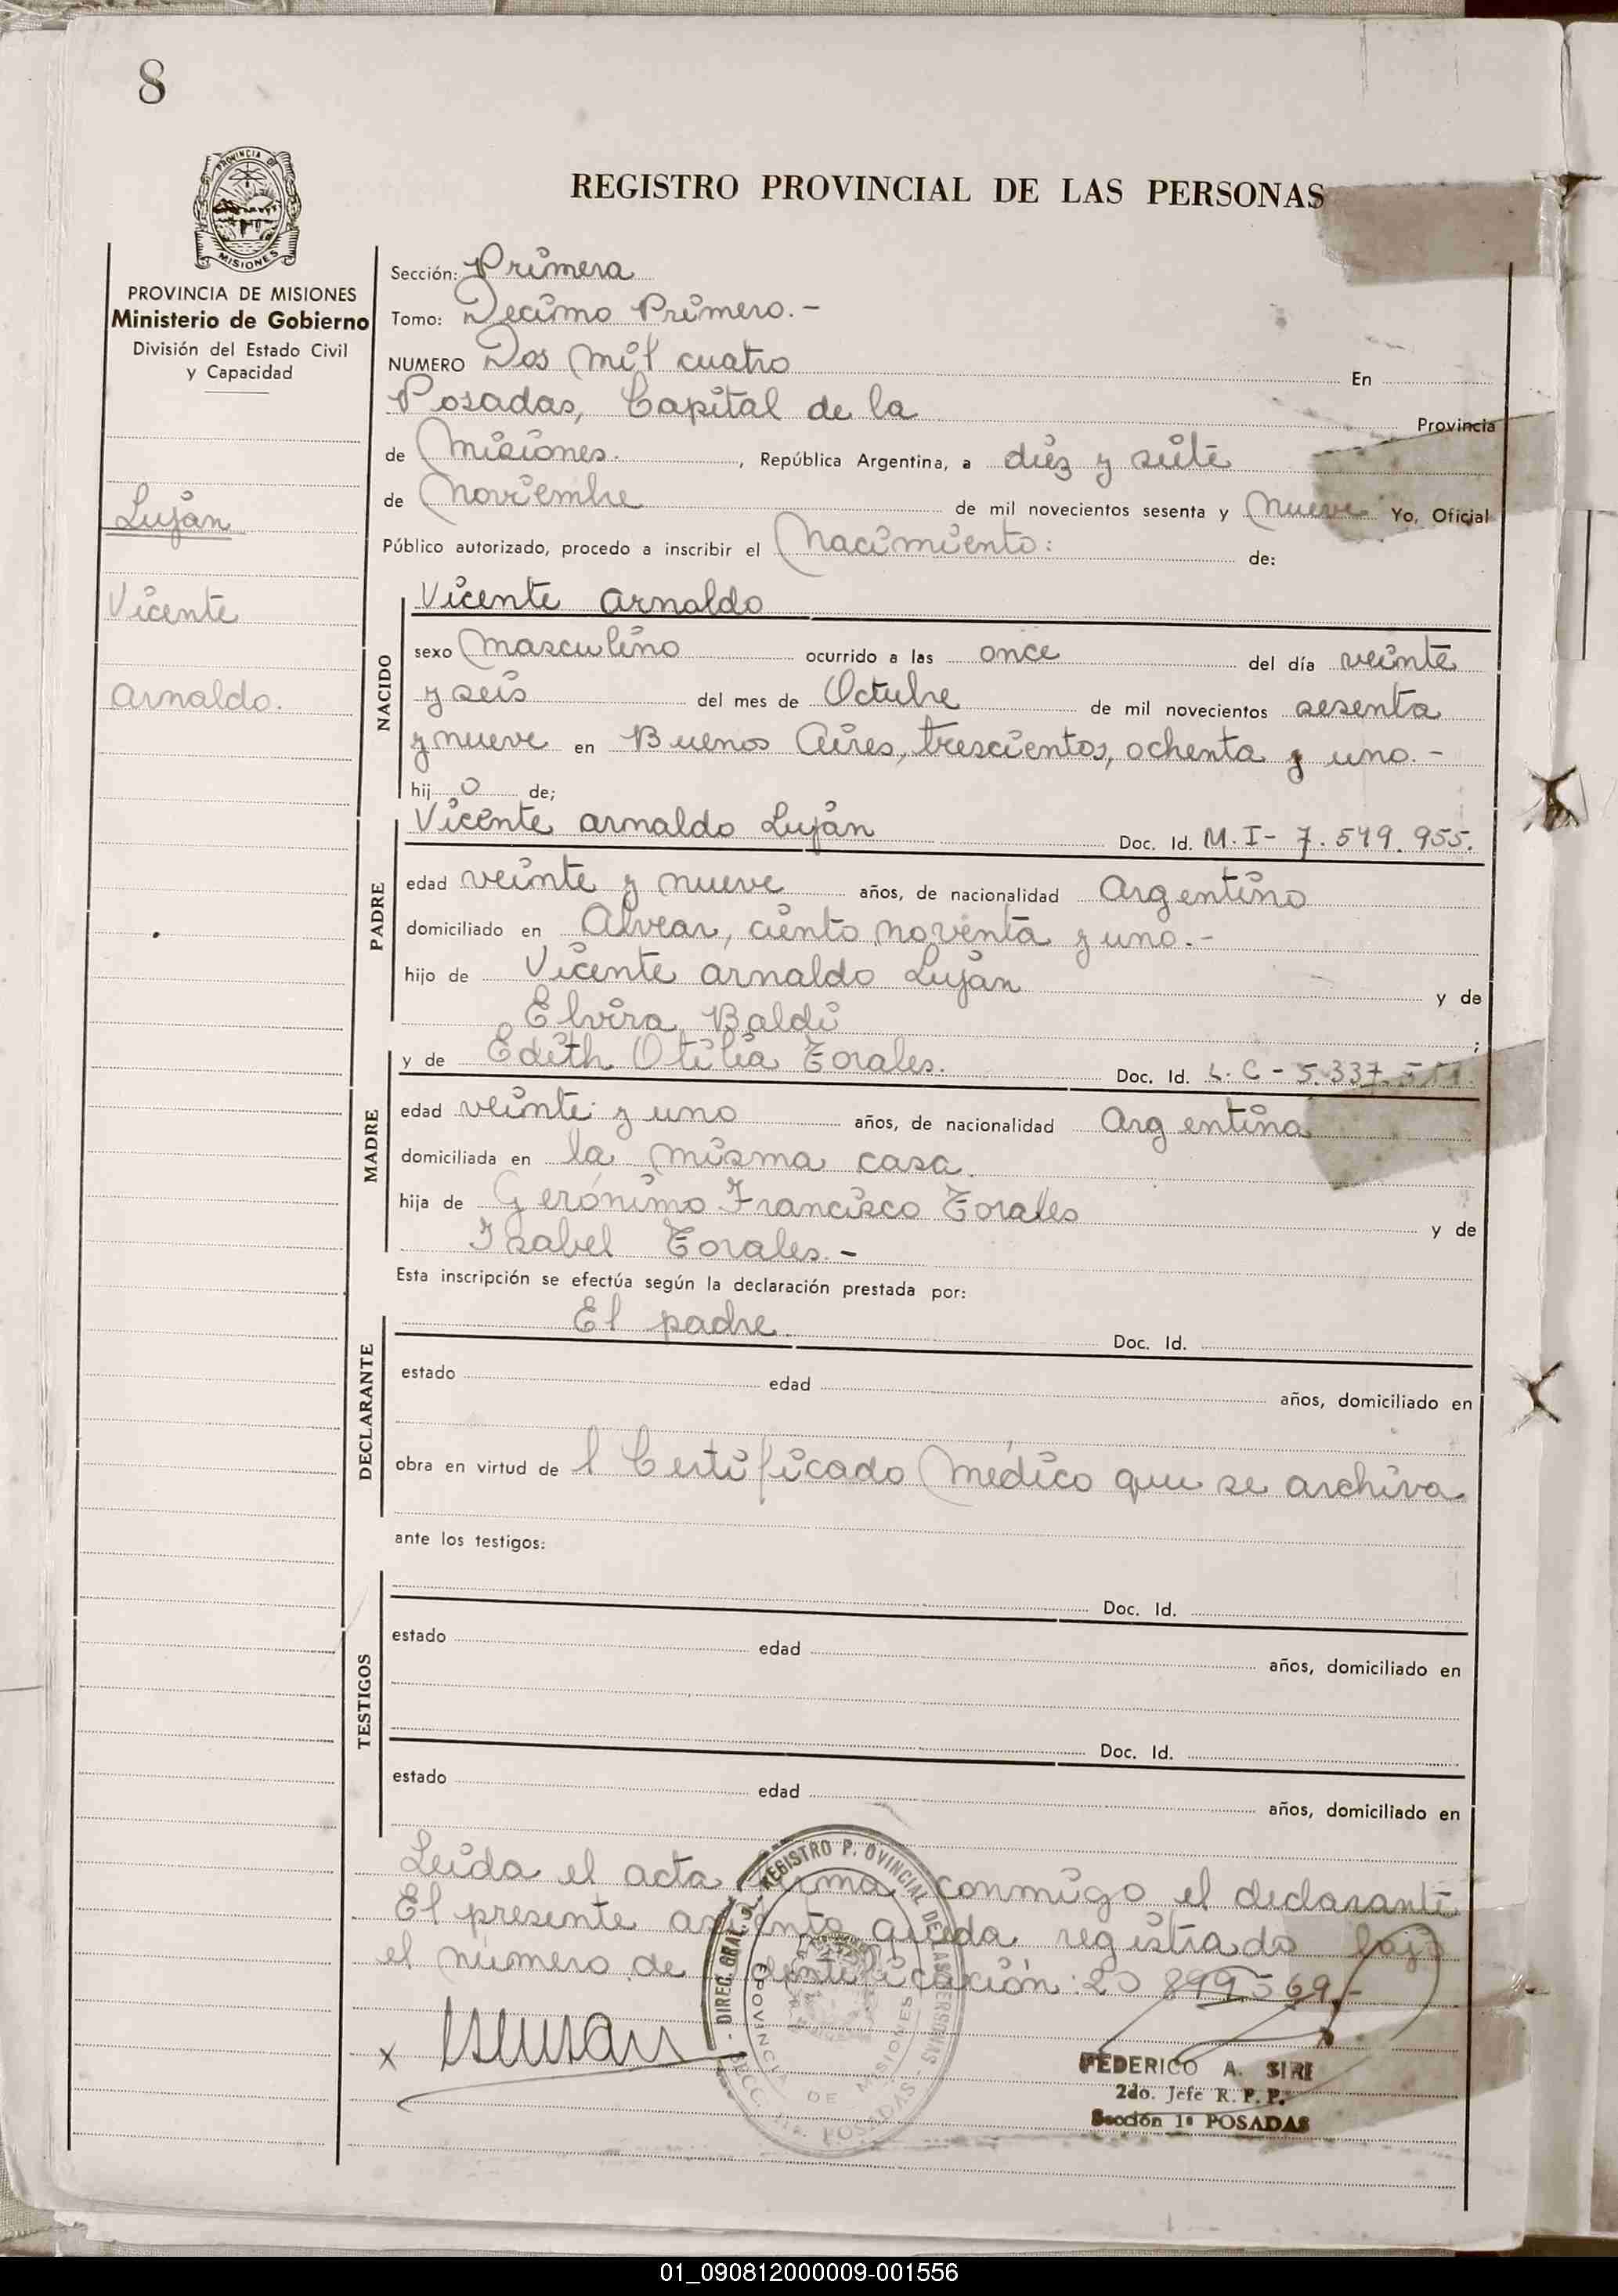 8
PROVINCIA DE
MISIONES
REGISTRO PROVINCIAL DE LAS PERSONAS
PROVINCIA DE MISIONES
Ministerio de Gobierno
División del Estado Civil
y Capacidad
Luján
Vicente
Arnaldo.
Sección: Primera
Tomo: Decimo Primero.-
NUMERO Dos mil cuatro En
Posadas, Capital de la Provincia
de Misiones. , República Argentina, a diez y siete
de Noviembre de mil novecientos sesenta y nueve Yo, Oficial
Público autorizado, procedo a inscribir el Nacimiento: de:
NACIDO
Vicente Arnaldo
sexo masculino ocurrido a las once del día veinte
y seis del mes de Octubre de mil novecientos sesenta
y nueve en Buenos Aires, trescientos, ochenta y uno.-
hij o de;
PADRE
Vicente Arnaldo Luján Doc. Id. M.I- 7.549.955.
edad veinte y nueve años, de nacionalidad Argentino
domiciliado en Alvear, ciento noventa y uno.-
hijo de Vicente Arnaldo Luján y de
Elvira Baldi ;
MADRE
y de Edith Otilia Torales. Doc. Id. L.C - 5.337.
edad veinte y uno años, de nacionalidad Argentina
domiciliada en la misma casa.
hija de Gerónimo Francisco Torales y de
Isabel Torales.-
Esta inscripción se efectúa según la declaración prestada por:
DECLARANTE
El padre. Doc. Id.
estado edad años, domiciliado en
obra en virtud de l Certificado Médico que se archiva
ante los testigos:
TESTIGOS
Doc. Id.
estado edad años, domiciliado en
Doc. Id.
estado edad años, domiciliado en
Leida el acta firma conmigo el declarante
El presente asiento queda registrado bajo
el número de identificación: 20 899569.-
DIREC. GRAL. DEL REGISTRO PROVINCIAL DE LAS PERSONAS
PROVINCIA DE MISIONES
POSADAS
x
FEDERICO A. SIRI
2do. Jefe R. P. P.
Sección 1ª POSADAS
01_090812000009-001556